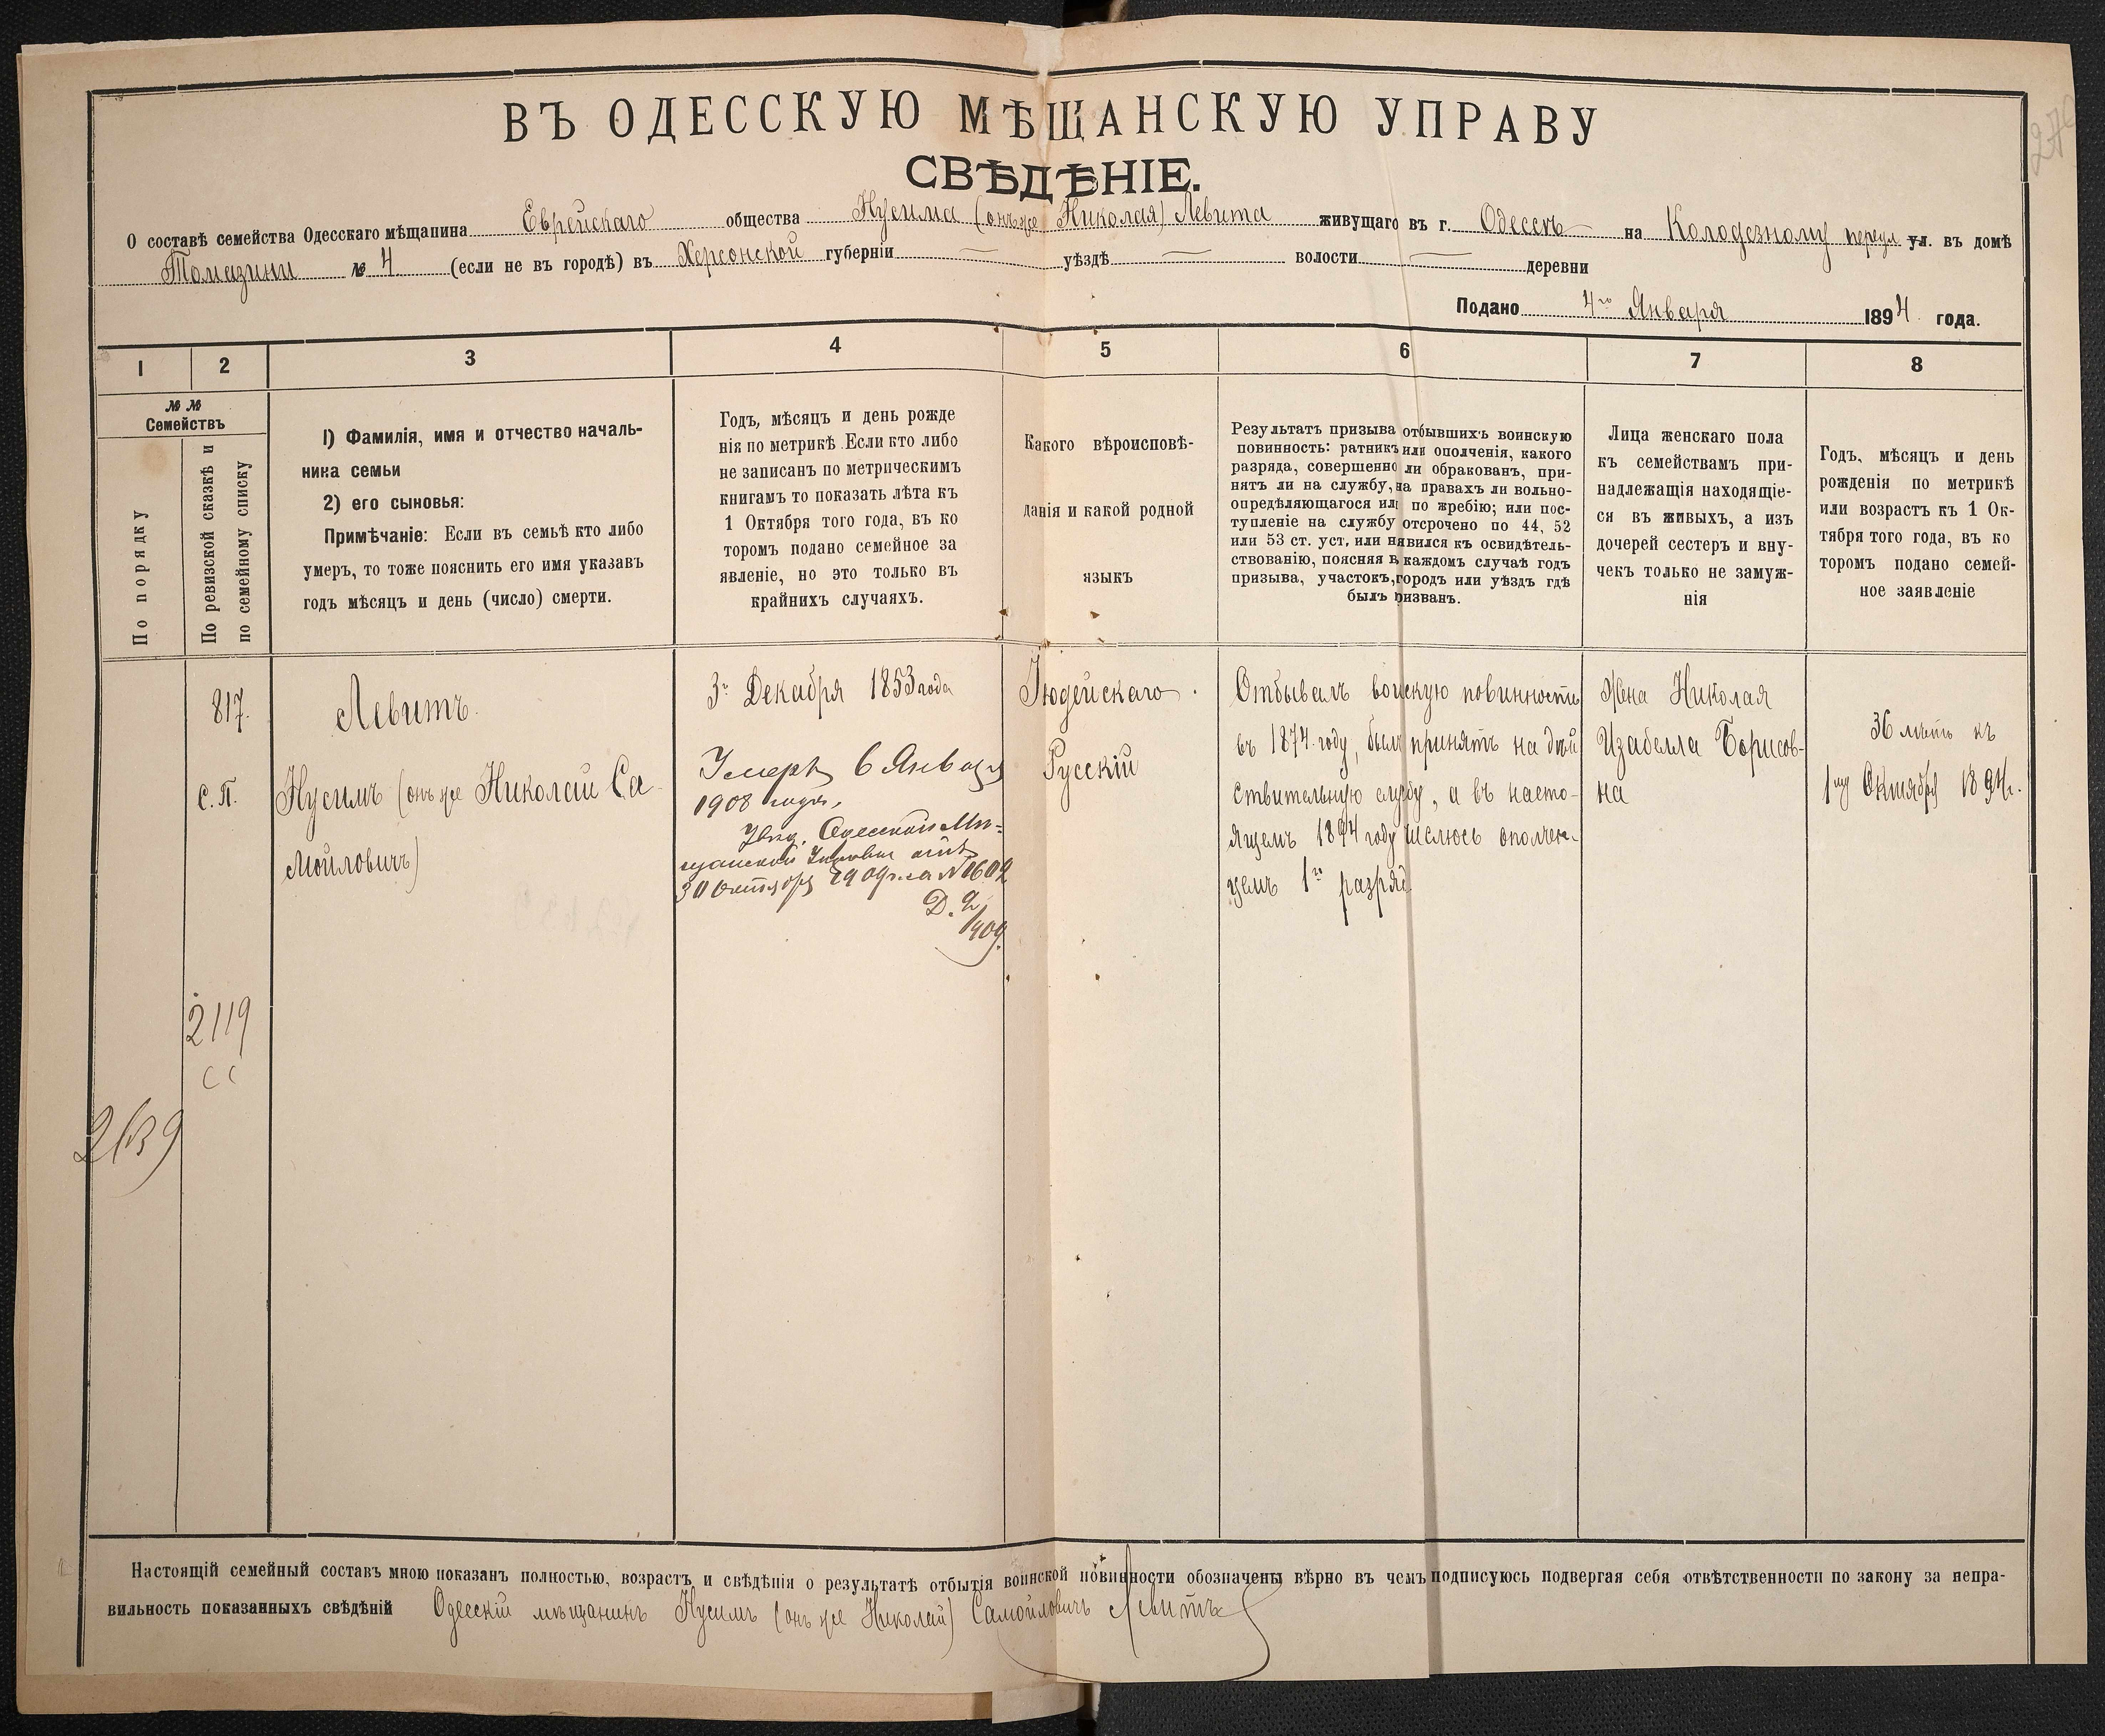 ВЪ ОДЕССКУЮ МѢЩАНСКУЮ УПРАВУ
СВѢДѢНІЕ.
О составѣ семейства Одесскаго мѣщанина Еврейскаго общества Нусима (онъ же Николая) Левита живущаго въ г. Одессѣ на Колодезному переул ул. въ домѣ
Томазини № 4 (если не въ городѣ) въ Херсонской губерніи — уѣздѣ — волости — деревни
Подано 4го Января 1894 года.
1 2 3 4 5 6 7 8
№ № Семействъ
По порядку
По ревизской сказкѣ и
по семейному списку
1) Фамилія, имя и отчество началь-
ника семьи
2) его сыновья:
Примѣчаніе: Если въ семьѣ кто либо
умеръ, то тоже пояснить его имя указавъ
годъ мѣсяцъ и день (число) смерти.
Годъ, мѣсяцъ и день рожде
нія по метрикѣ. Если кто либо
не записанъ по метрическимъ
книгамъ то показать лѣта къ
1 Октября того года, въ ко
торомъ подано семейное за
явленіе, но это только въ
крайнихъ случаяхъ.
Какого вѣроисповѣ-
данія и какой родной
языкъ
Результатъ призыва отбывшихъ воинскую
повинность: ратникъ или ополченія, какого
разряда, совершенно ли обракованъ, при-
нятъ ли на службу, на правахъ ли вольно-
опредѣляющагося или по жребію; или пос-
тупленіе на службу отсрочено по 44, 52
или 53 ст. уст, или нявился къ освидѣтель-
ствованію, поясняя въ каждомъ случаѣ годъ
призыва, участокъ, городъ или уѣздъ гдѣ
былъ призванъ.
Лица женскаго пола
къ семействамъ при-
надлежащія находящіе-
ся въ живыхъ, а изъ
дочерей сестеръ и вну-
чекъ только не замуж-
нія
Годъ, мѣсяцъ и день
рожденія по метрикѣ
или возрастъ къ 1 Ок-
тября того года, въ ко
торомъ подано семей-
ное заявленіе
817.
с. П.
2119
Левитъ.
Нусимъ (онъ же Николай Са-
мойловичъ)
3го Декабря 1853 года
Умеръ 6 Января
1908 года,
Увѣд. Одесской Мѣ-
щанской Управы отъ
30 Октября 1909 г. за №
Іюдейскаго.
Русскій
Отбывалъ воинскую повинность
въ 1874 году, былъ принятъ на дѣй
ствительную службу, а въ насто-
ящемъ 1894 году числюсь ополчен-
цемъ 1го разряд
Жена Николая
Изабелла Борисов-
на
36 лѣтъ къ
1му Октября 1894 г.
Настоящій семейный составъ мною показанъ полностью, возрастъ и свѣдѣнія о результатѣ отбытія воинской повинности обозначены вѣрно въ чемъ подписуюсь подвергая себя отвѣтственности по закону за непра-
вильность показанныхъ свѣдѣній Одесскій мѣщанинъ Нусимъ (онъ же Николай) Самойловичъ Левитъ